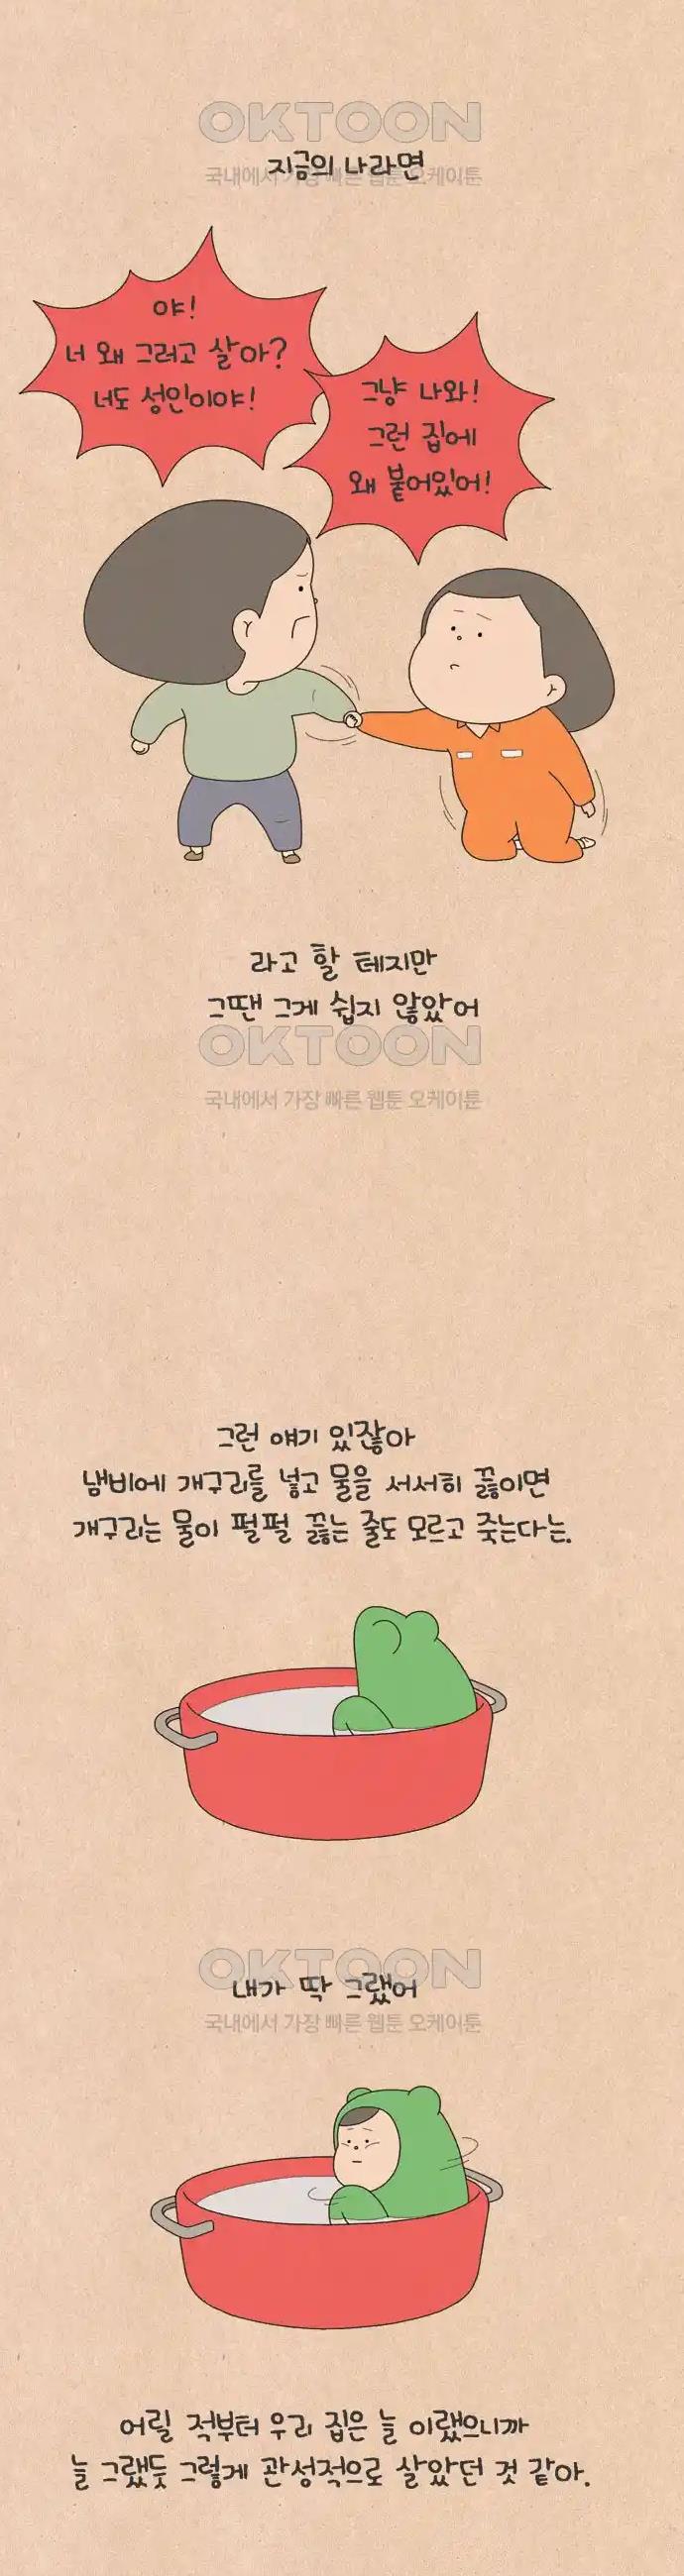 OKTOON
지금의 나라면
국내에서 가장 빠른 웹툰 오케이툰
야!
너 왜 그러고 살아?
너도 성인이야!
그냥 나와!
그런 집에
왜 붙어있어!
라고 할 테지만
그땐 그게 쉽지 않았어
OKTOON
국내에서 가장 빠른 웹툰 오케이툰
그런 얘기 있잖아
냄비에 개구리를 넣고 물을 서서히 끓이면
개구리는 물이 펄펄 끓는 줄도 모르고 죽는다는.
OKTOON
내가 딱 그랬어
국내에서 가장 빠른 웹툰 오케이툰
어릴 적부터 우리 집은 늘 이랬으니까
늘 그랬듯 그렇게 관성적으로 살았던 것 같아.